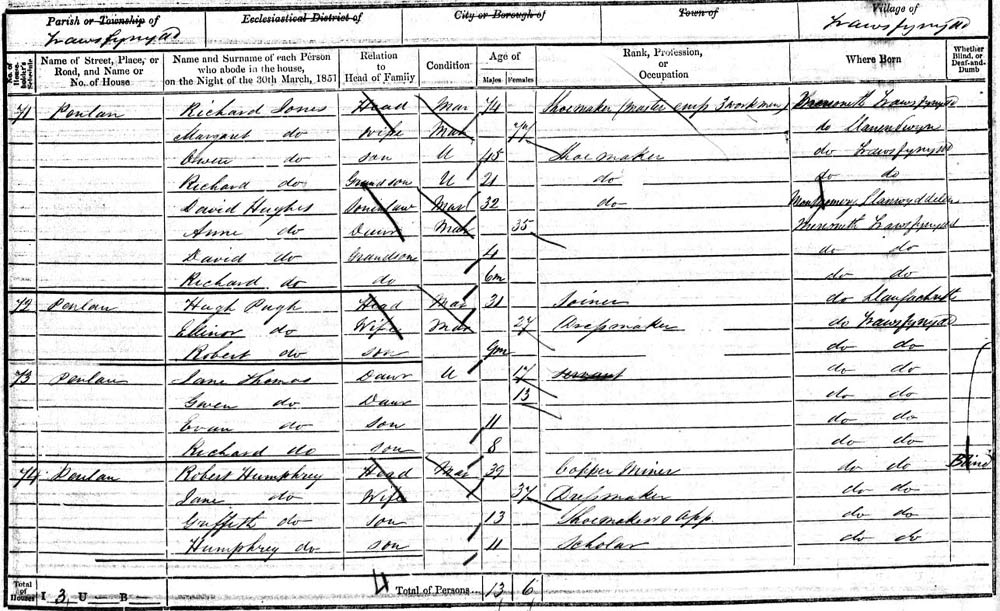 Parish or Township of Ecclesiastical District of City or Borough of Town of Village of
Trawsfynydd Trawsfynydd
No. of House-holder's Schedule Name of Street, Place, or Road, and Name or No. of House Name and Surname of each Person who abode in the house, on the Night of the 30th March, 1851 Relation to Head of Family Condition Age of Males Females Rank, Profession, or Occupation Where Born Whether Blind, or Deaf-and-Dumb
71 Penlan Richard Jones Head Mar 74 Shoemaker (Master emp 3 workmen) Merioneth Trawsfynydd
Margaret do Wife Mar 74 do
Owen do son U 45 Shoemaker do Trawsfynydd
Richard do Grandson U 21 do do do
David Hughes Soninlaw Mar 32 do Montgomery Llanwyddelan
Anne do Daur Mar 35 Merioneth Trawsfynydd
David do Grandson 4 do do
Richard do do 6m do do
72 Penlan Hugh Pugh Head Mar 31 Joiner do Llanfachreth
Ellinor do Wife Mar 27 Dressmaker do Trawsfynydd
Robert do son 9m do do
73 Penlan Jane Thomas Daur U 17 servant do do
Gwen do Daur 13 do do
Evan do son 11 do do
Richard do son 8 do do
74 Penlan Robert Humphrey Head Mar 39 Copper Miner do do Blind
Jane do Wife 37 Dressmaker do do
Griffith do son 13 Shoemakers App do do
Humphrey do son 11 Scholar do do
Total of Houses I 3 U — B — Total of Persons... 13 6